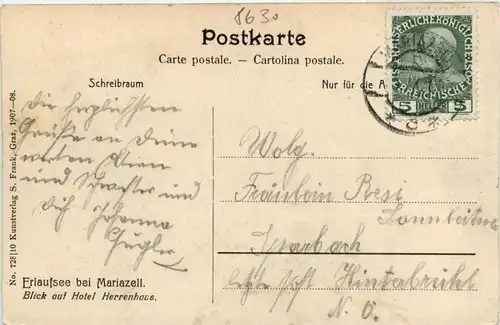 8630
Postkarte
Carte postale. — Cartolina postale.
Schreibraum
Nur für die A
KAISERLICHE KÖNIGLICHE
ÖSTERREICHISCHE
5 HELLER 5
Die herzlichsten
Grüße an Deine
werten Eltern
und Schwester und
Dich Johanna
Gugler
Wolg.
Fräulein Resi
Sonnleitner
Sparbach
letzte Post Hinterbrühl
N. Ö.
Erlaufsee bei Mariazell.
Blick auf Hotel Herrenhaus.
No. 728|10 Kunstverlag S. Frank, Graz, 1907-08.